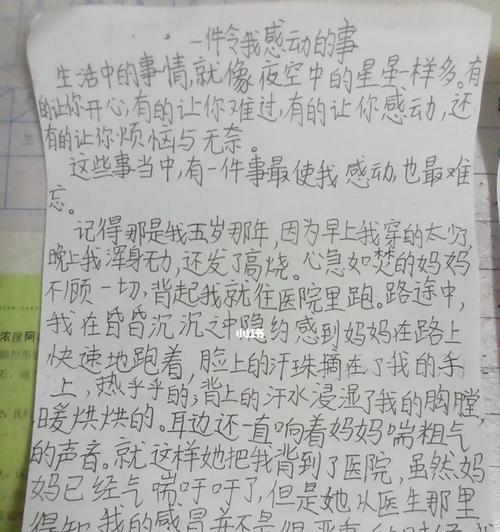 一件令我感动的事
生活中的事情,就像夜空中的星星一样多。有
的让你开心,有的让你难过,有的让你感动,还
有的让你烦恼与无奈。
这些事当中,有一件事最使我感动,也最难
忘。
记得那是我五岁那年,因为早上我穿的太少,
晚上我浑身无力,还发了高烧。心急如焚的妈妈
不顾一切,背起我就往医院里跑。路途中,
我在昏昏沉沉之中隐约感到妈妈在路上
快速地跑着,脸上的汗珠摘在了我的手
上,热乎乎的;背上的汗水浸湿了我的胸膛,
暖烘烘的。耳边还一直响着妈妈喘粗气
的声音。就这样她把我背到了医院,虽然妈
妈已经气喘吁吁了,但是她从医生那里
得知我的感冒并不是很严重
小红书
浓度阿